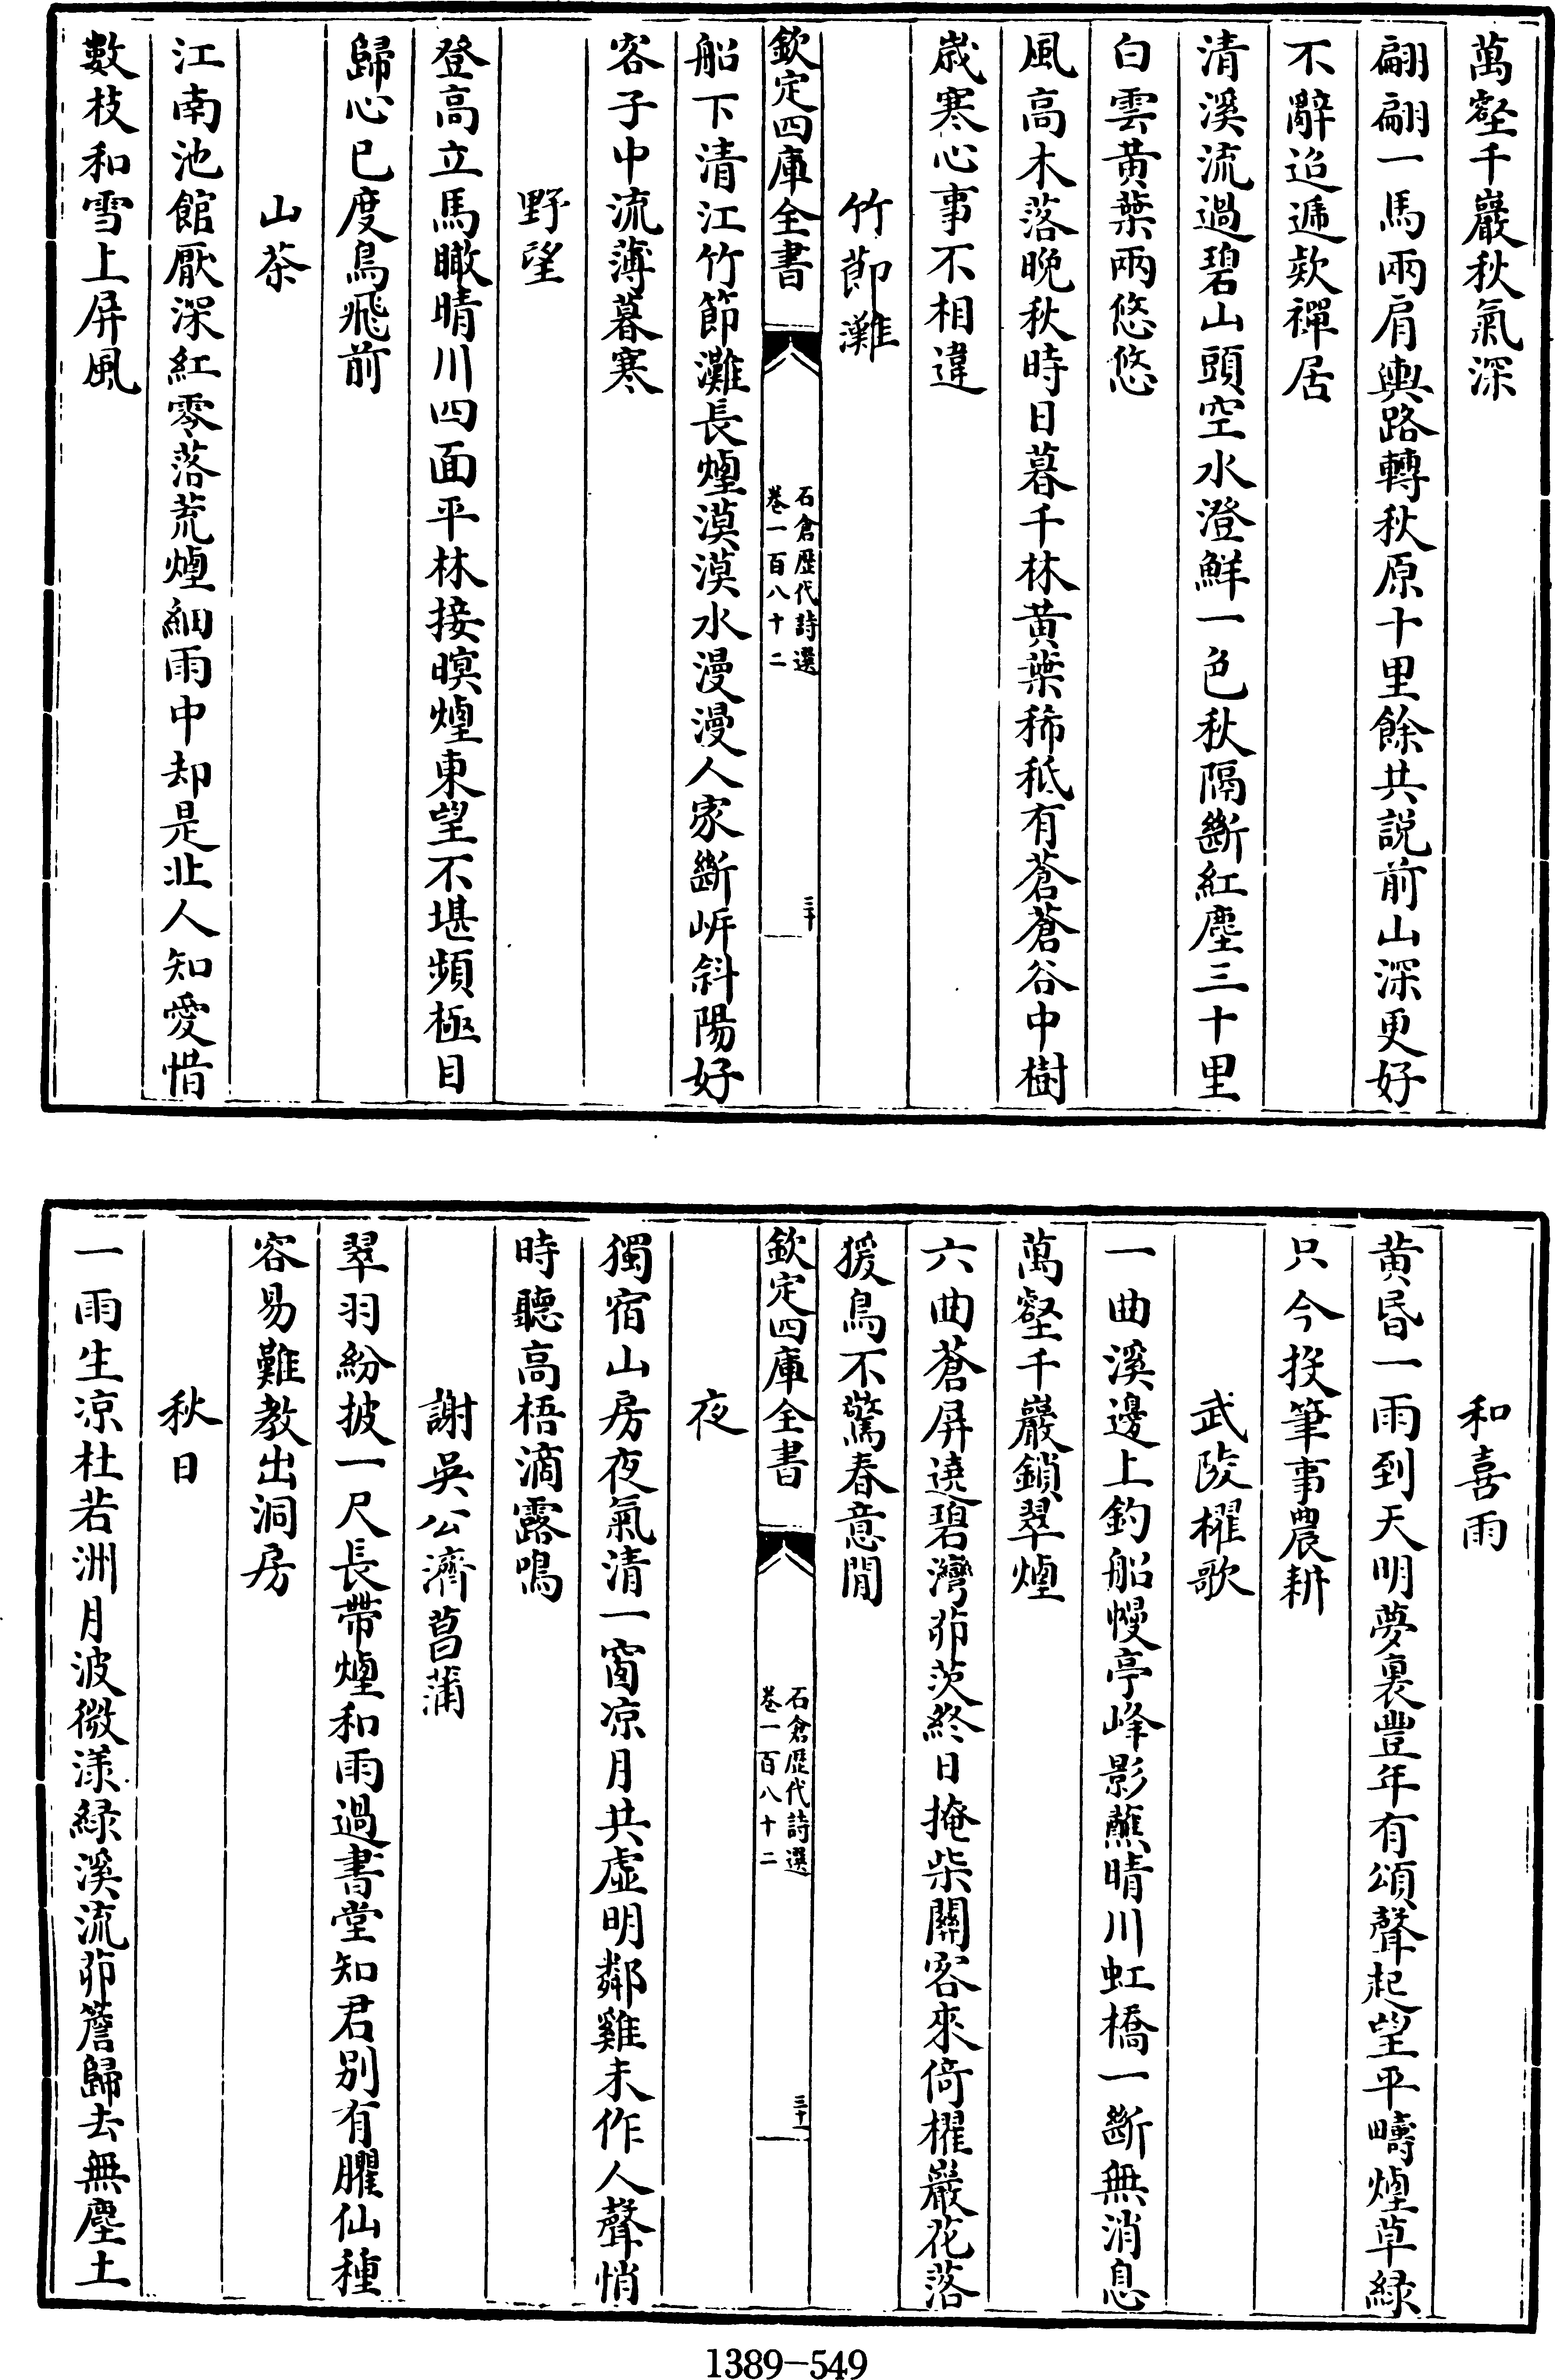 萬壑千巖秋氣深
翩翩一馬兩肩輿路轉秋原十里餘共説前山深更好
不辭迢遞欵禪居
清溪流過碧山頭空水澄鮮一色秋隔斷紅塵三十里
白雲黄葉兩悠悠
風高木落晚秋時日暮千林黄葉稀秪有蒼蒼谷中樹
歳寒心事不相違
竹節灘
欽定四庫全書
石倉歴代詩選
卷一百八十二
三十
船下清江竹節灘長煙漠漠水漫漫人家斷岸斜陽好
客子中流薄暮寒
野望
登高立馬瞰晴川四面平林接暝煙東望不堪頻極目
歸心已度鳥飛前
山茶
江南池館厭深紅零落荒煙細雨中却是北人知愛惜
數枝和雪上屏風
和喜雨
黄昏一雨到天明夢裏豐年有頌聲起望平疇煙草緑
只今投筆事農耕
武陵櫂歌
一曲溪邊上釣船幔亭峰影蘸晴川虹橋一斷無消息
萬壑千巖鎖翠煙
六曲蒼屏遶碧灣茆茨終日掩柴關客來倚櫂巖花落
猨鳥不驚春意閒
欽定四庫全書
石倉歴代詩選
卷一百八十二
三十一
夜
獨宿山房夜氣清一窗凉月共虚明鄰雞未作人聲悄
時聽高梧滴露鳴
謝吳公濟菖蒲
翠羽紛披一尺長帶煙和雨過書堂知君别有臞仙種
容易難教出洞房
秋日
一雨生凉杜若洲月波微漾緑溪流茆簷歸去無塵土
1389-549